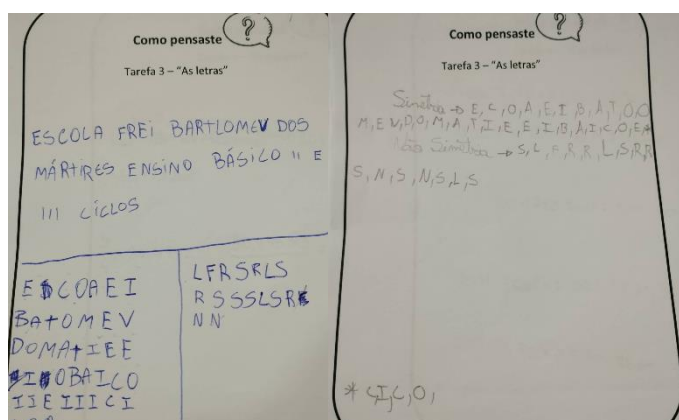 Como pensaste ?
Tarefa 3 – "As letras"
ESCOLA FREI BARTLOMEV DOS
MÁRTIRES ENSINO BÁSICO II E
III CICLOS
E COAEI
BATOMEV
DOMATIEE
I OBAICO
IIEIIICI
LFRSRLS
RSSSLSR
NN
Como pensaste ?
Tarefa 3 – "As letras"
Simétrica → E, C, O, A, E, I, B, A, T, O, O
M, E, V, D, O, M, A, T, I, E, E, I, B, A, I, C, O, E, A
Não Simétrica → S, L, F, R, R, L, S, R, R
S, N, S, N, S, L, S
* C, I, C, O,